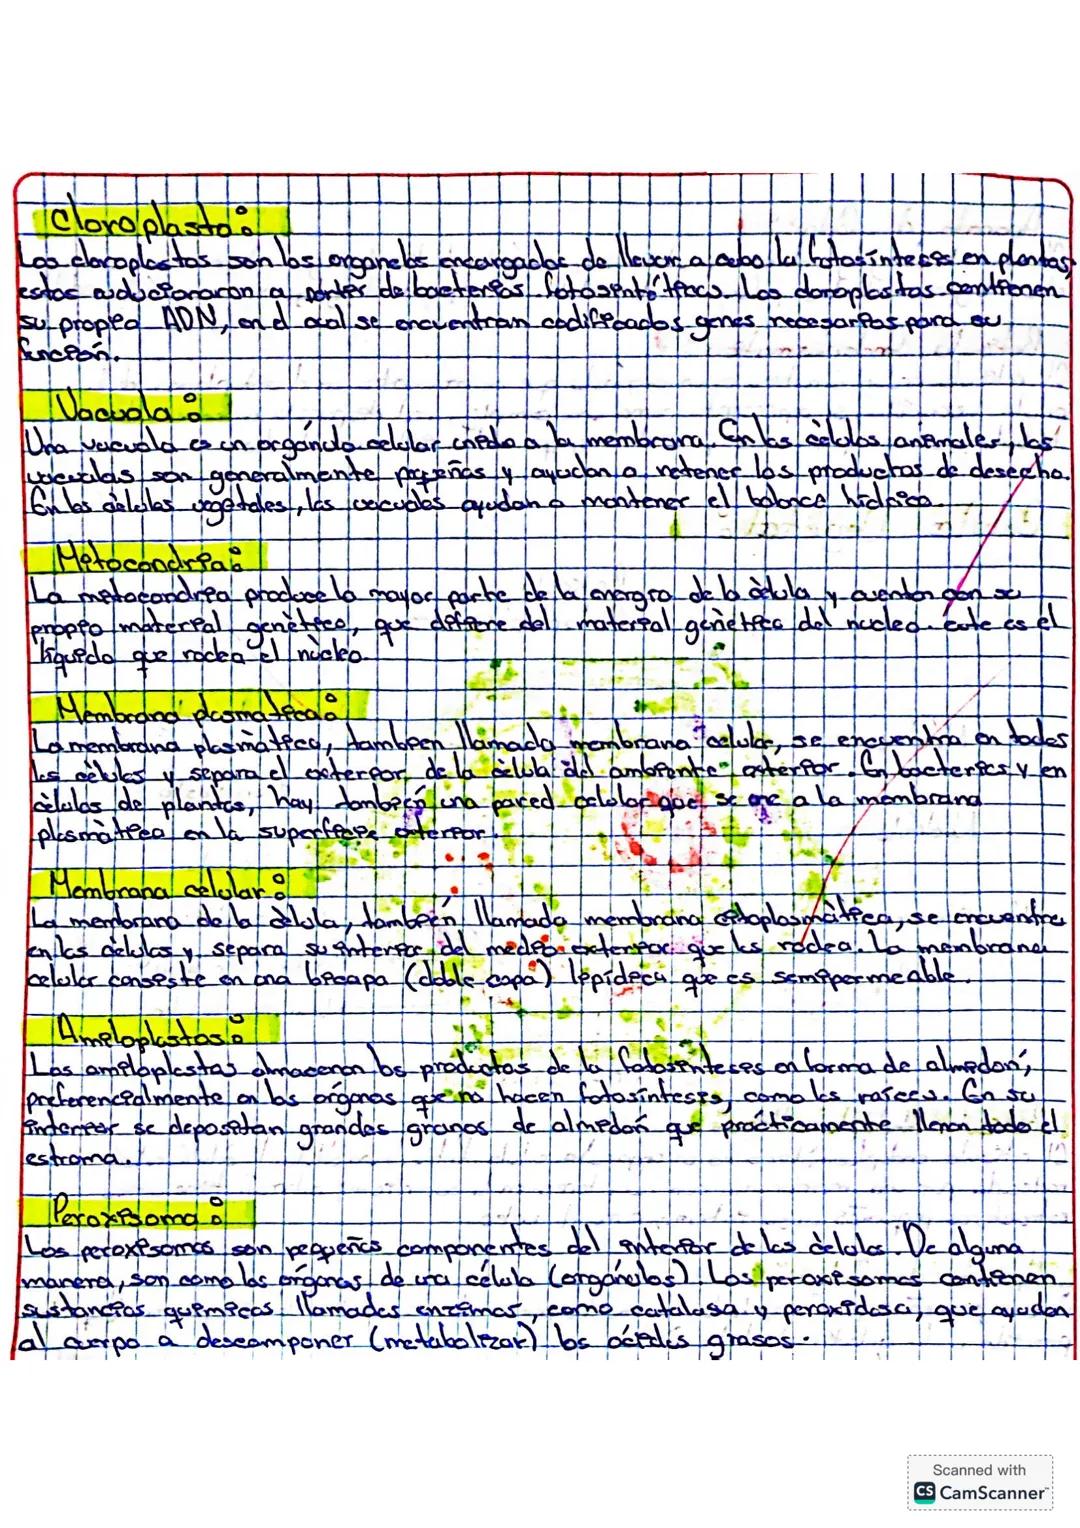 Cloroplasto:
Los cloroplastos son los organelos encargados de llevar a cabo la fotosíntesis en plantas,
estos evolucionaron a partir de bacterias fotosintéticas. Los cloroplastos contienen
su propio ADN, en el cual se encuentran codificados genes necesarios para su
función.
Vacuola:
Una vacuola es un orgánulo celular unido a la membrana. En las cèlulas animales, las
vacuolas son generalmente pequeñas y ayudan a retener los productos de desecho.
En las cèlulas vegetales, las vacuolas ayudan a mantener el balance hídrico.
Mitocondria:
La mitocondria produce la mayor parte de la energía de la cèlula y cuentan con su
propio material genètico, que difiere del material genètico del nucleo. Este es el
liquido que rodea el nùcleo.
Membrana plasmatica:
La membrana plasmàtica, tambien llamada membrana celular, se encuentra en todas
las cèlulas y separa el exterior de la cèlula del ambiente exterior. En bacterias y en
cèlulas de plantas, hay tambièn una pared celular que se une a la membrana
plasmàtica en la superficie exterior.
Membrana celular:
La membrana de la cèlula, tambièn llamada membrana citoplasmàtica, se encuentra
en las cèlulas y separa su interior del medio exterior que las rodea. La membrana
celular consiste en una bicapa (doble capa) lipídica que es semipermeable.
Amiloplastos:
Los amiloplastos almacenan los productos de la fotosintesis en forma de almidón,
preferencialmente en los órganos que no hacen fotosíntesis, como las raíces. En su
interior se depositan grandes granos de almidón que prácticamente llenan todo el
estroma.
Peroxisoma:
Los peroxisomas son pequeños componentes del interior de las cèlulas. De alguna
manera, son como los órganos de una célula (orgánulos). Los peroxisomas contienen
sustancias químicas llamadas enzimas, como catalasa y peroxidasa, que ayudan
al cuerpo a descomponer (metabolizar) los ácidos grasos.
Scanned with
CS CamScanner